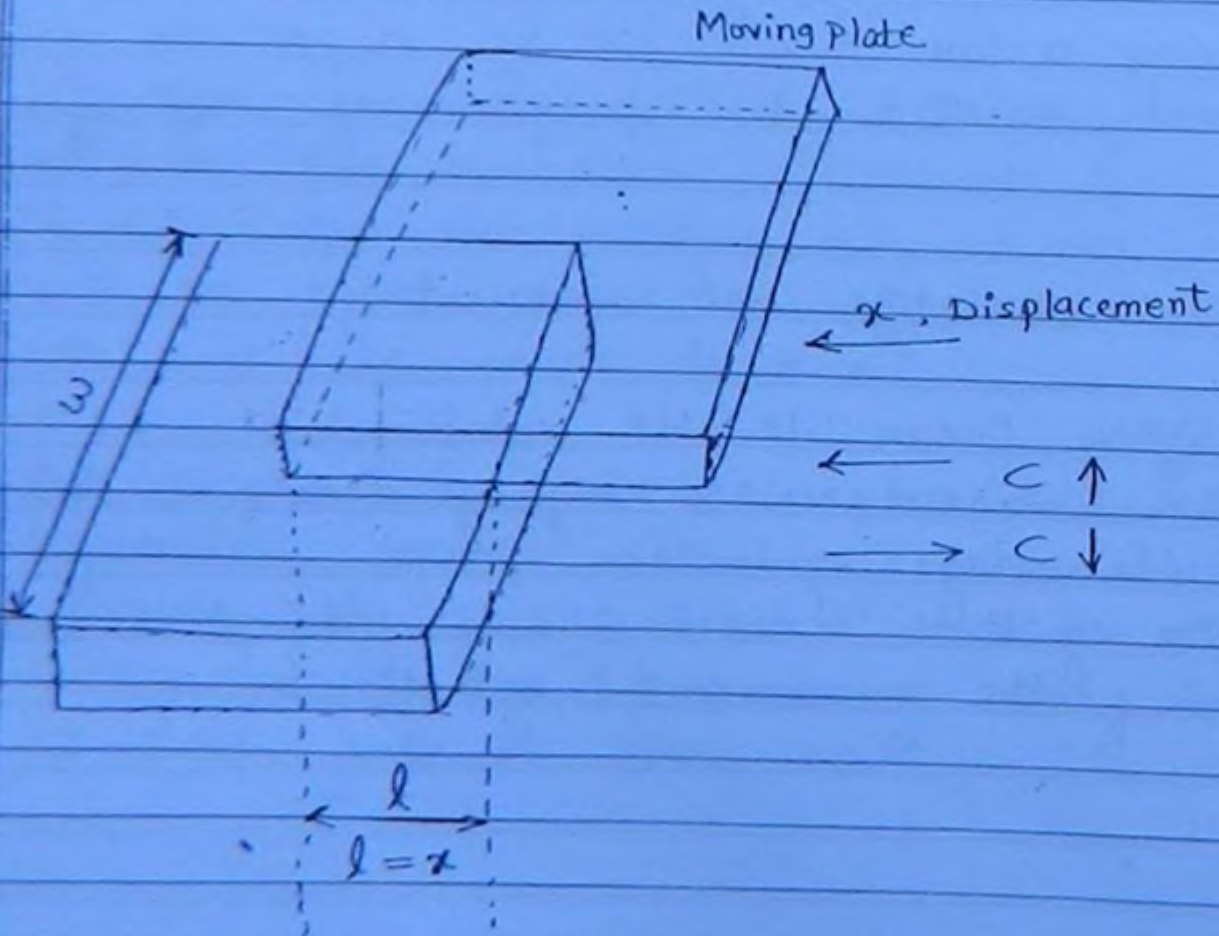 Moving plate
x, Displacement
ω
C ↑
C ↓
l
l = x